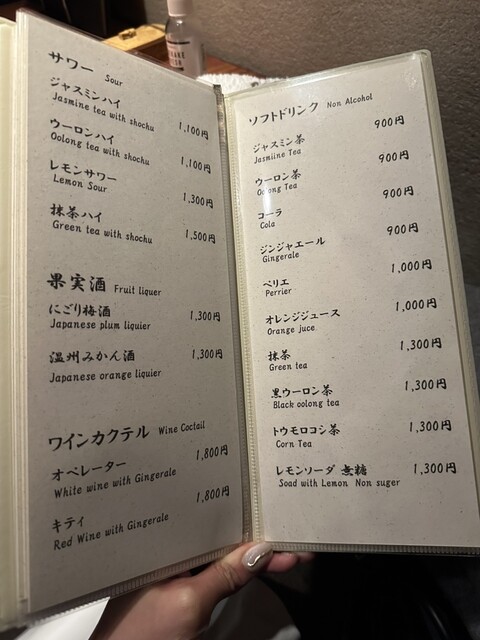 サワー Sour
ジャスミンハイ
Jasmine tea with shochu 1,100円
ウーロンハイ
Oolong tea with shochu 1,100円
レモンサワー
Lemon Sour 1,300円
抹茶ハイ
Green tea with shochu 1,500円
果実酒 Fruit liquer
にごり梅酒 1,300円
Japanese plum liquier
温州みかん酒 1,300円
Japanese orange liquier
ワインカクテル Wine Coctail
オペレーター 1,800円
White wine with Gingerale
キティ 1,800円
Red Wine with Gingerale
ソフトドリンク Non Alcohol
ジャスミン茶 900円
Jasmiine Tea
ウーロン茶 900円
Oolong Tea
コーラ 900円
Cola
ジンジャエール 900円
Gingerale
ペリエ 1,000円
Perrier
オレンジジュース 1,000円
Orange juce
抹茶 1,300円
Green tea
黒ウーロン茶 1,300円
Black oolong tea
トウモロコシ茶 1,300円
Corn Tea
レモンソーダ 無糖 1,300円
Soad with Lemon Non suger